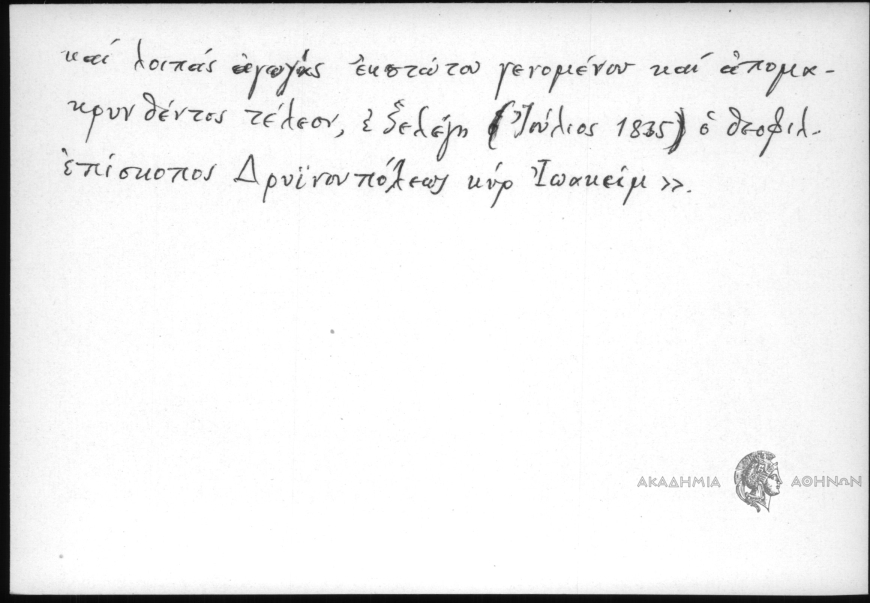 καί λοιπάς ἀγωγάς ἐκστώτου γενομένου καί ἀπομα-
κρυνθέντος τέλεον, ἐξελέγη (Ἰούλιος 1835) ὁ θεοφιλ.
ἐπίσκοπος Δρυϊνουπόλεως κύρ Ἰωακείμ».
ΑΚΑΔΗΜΙΑ ΑΘΗΝΩΝ